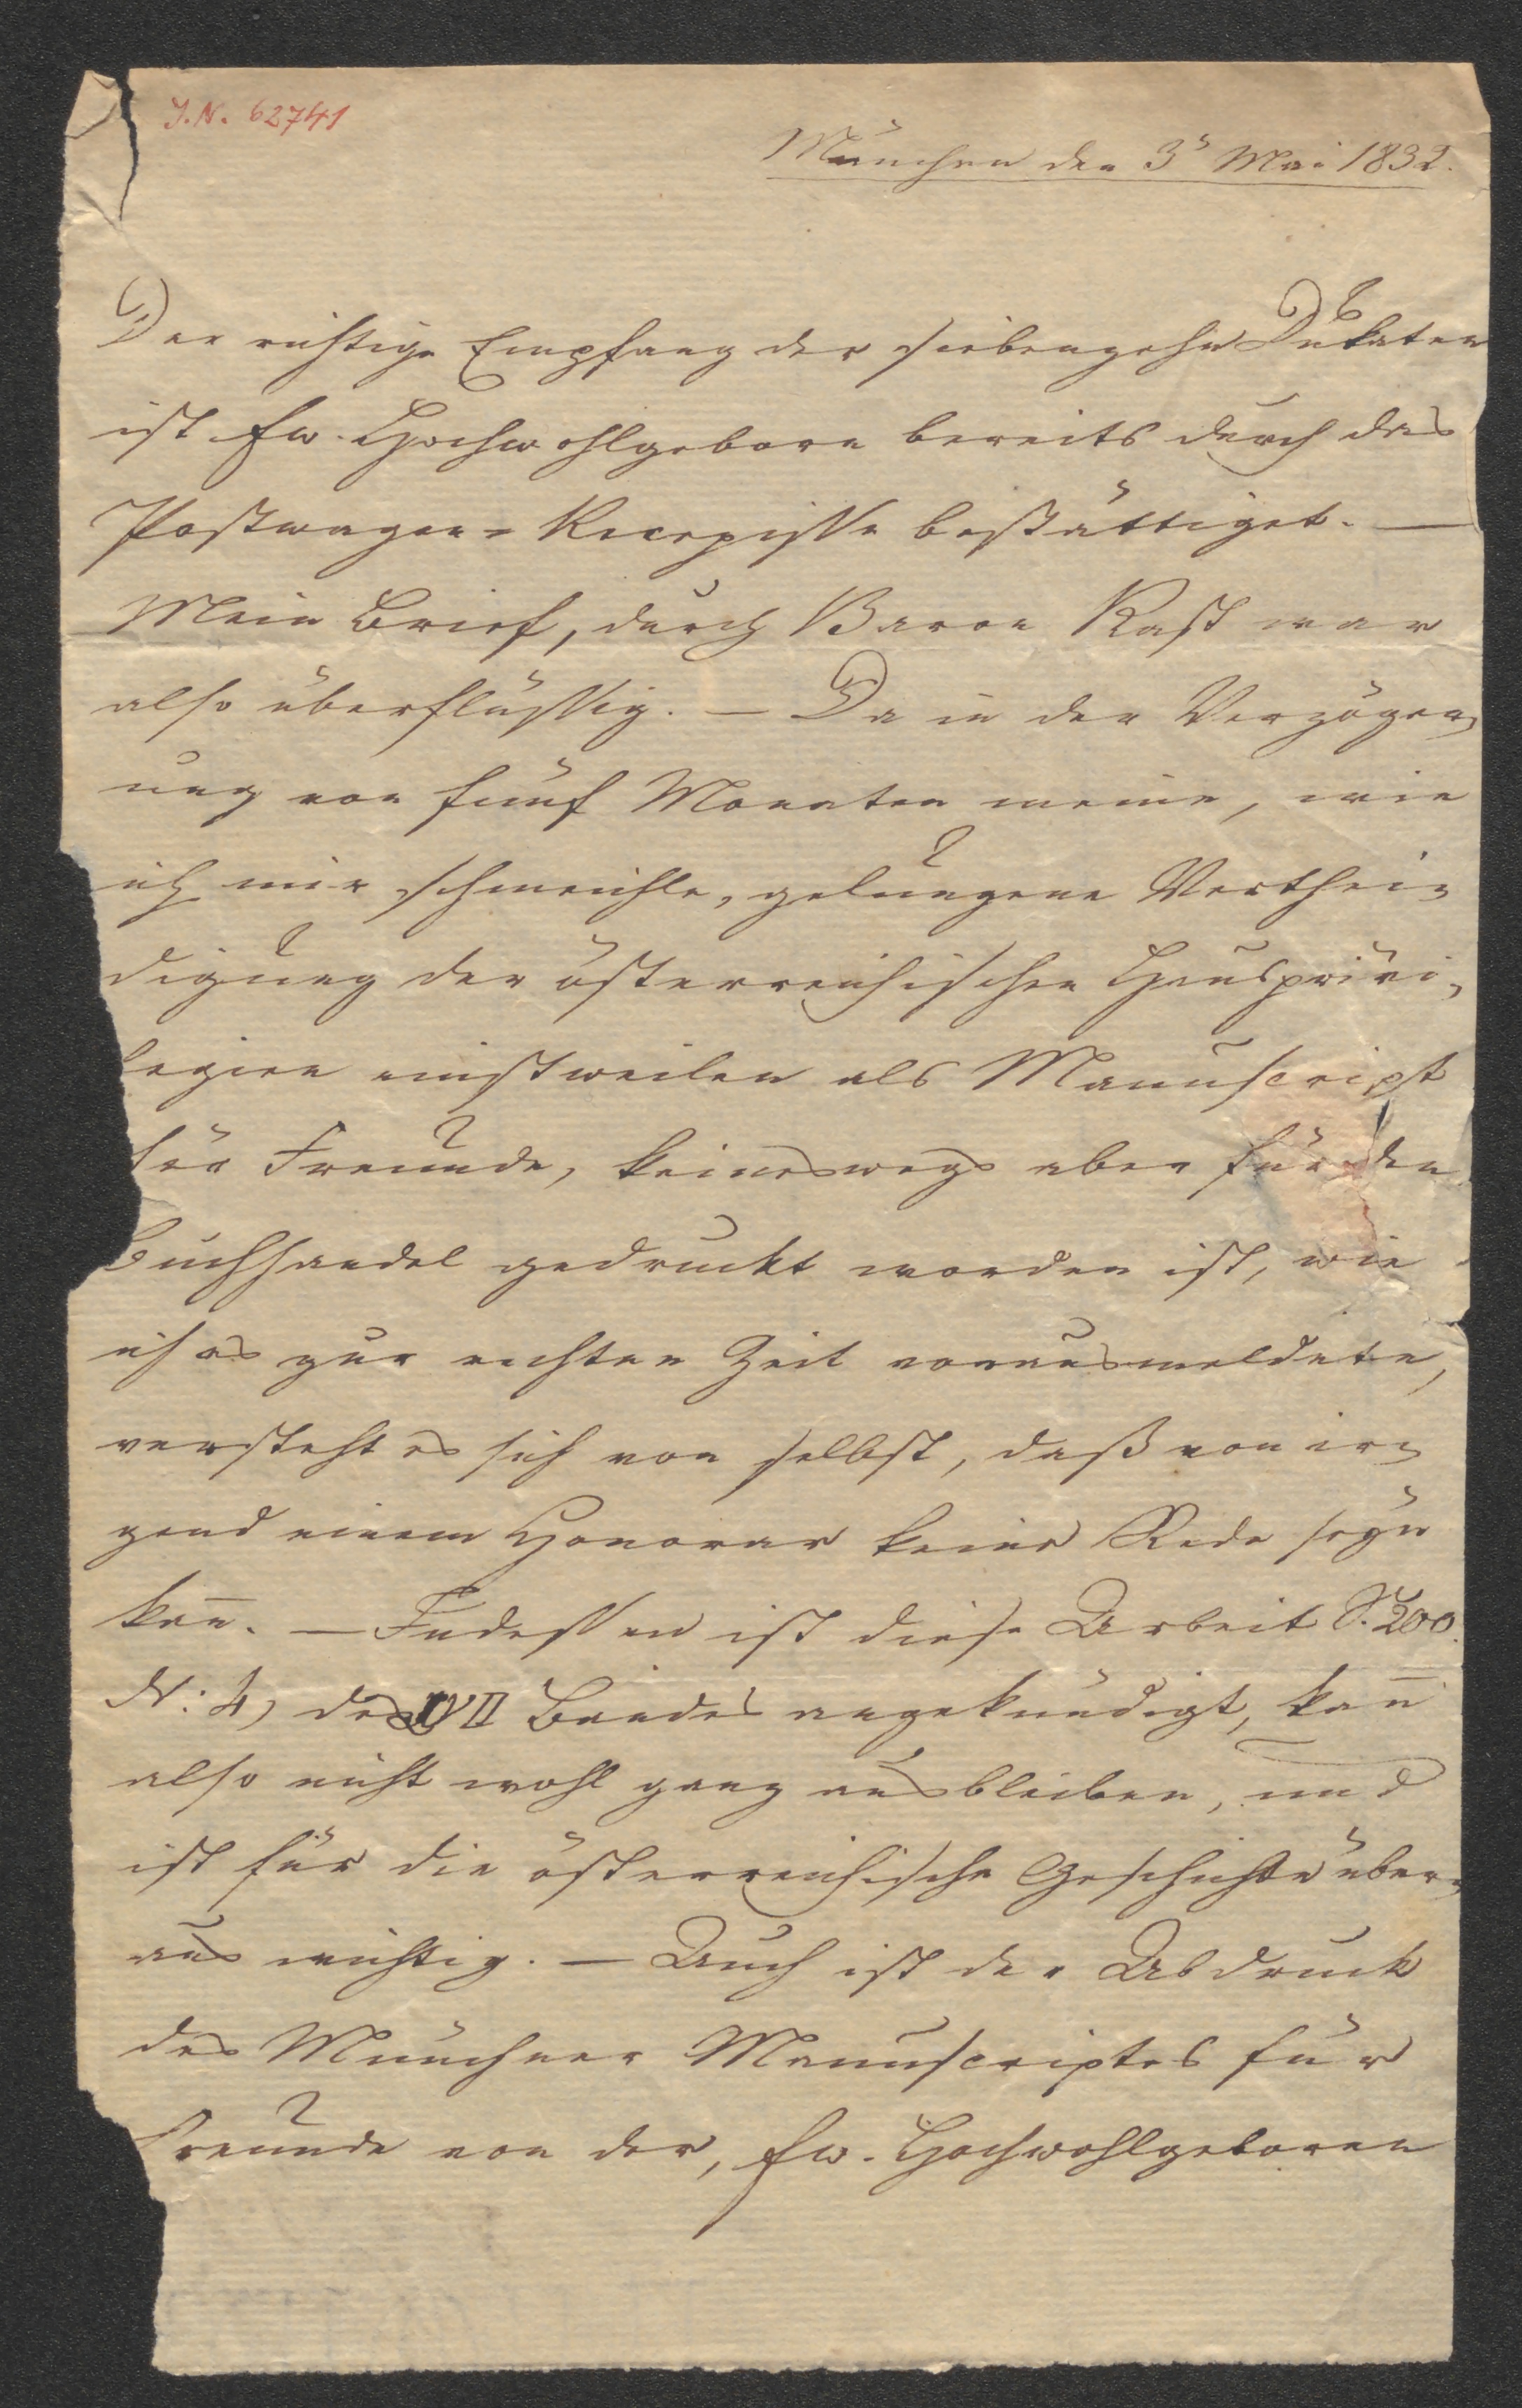 J.N. 62741
München den 3ᵗ Mai 1832.
Der richtige Empfang der siebenzehn Dukaten
ist Ew. Hochwohlgeborn bereits durch das
Postwagen-Recepisse bestättiget. —
Mein Brief, durch Baron Rast war
also überflüssig. — Da in der Verzöger-
ung von fünf Monaten meine, wie
ich mir schmeichle, gelungene Verthei-
digung der österreichischen Hausprivi-
legien einstweilen als Manuscript
für Freunde, keineswegs aber für den
Buchhandel gedruckt worden ist, wie
ich es zur rechten Zeit vorausmeldete,
versteht es sich von selbst, daß von ir-
gend einem Honorar keine Rede seyn
kañ. — Indessen ist diese Arbeit S. 200.
N: 4, des VII Bandes angekündigt, kañ
also nicht wohl ganz ausbleiben, und
ist für die österreichische Geschichte über-
aus wichtig. — Auch ist der Abdruck
des Münchner Manuscriptes für
Freunde von der, Ew. Hochwohlgeboren